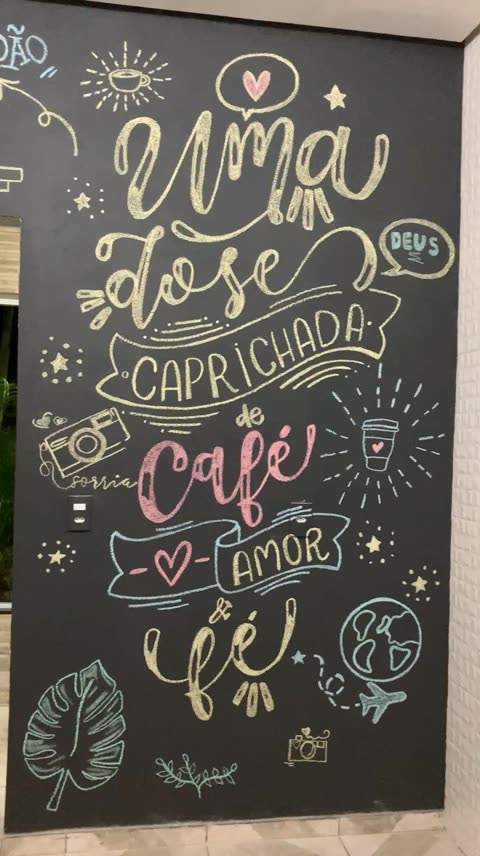 Uma
dose
DEUS
CAPRICHADA
de
Café
sorria
AMOR
& fé